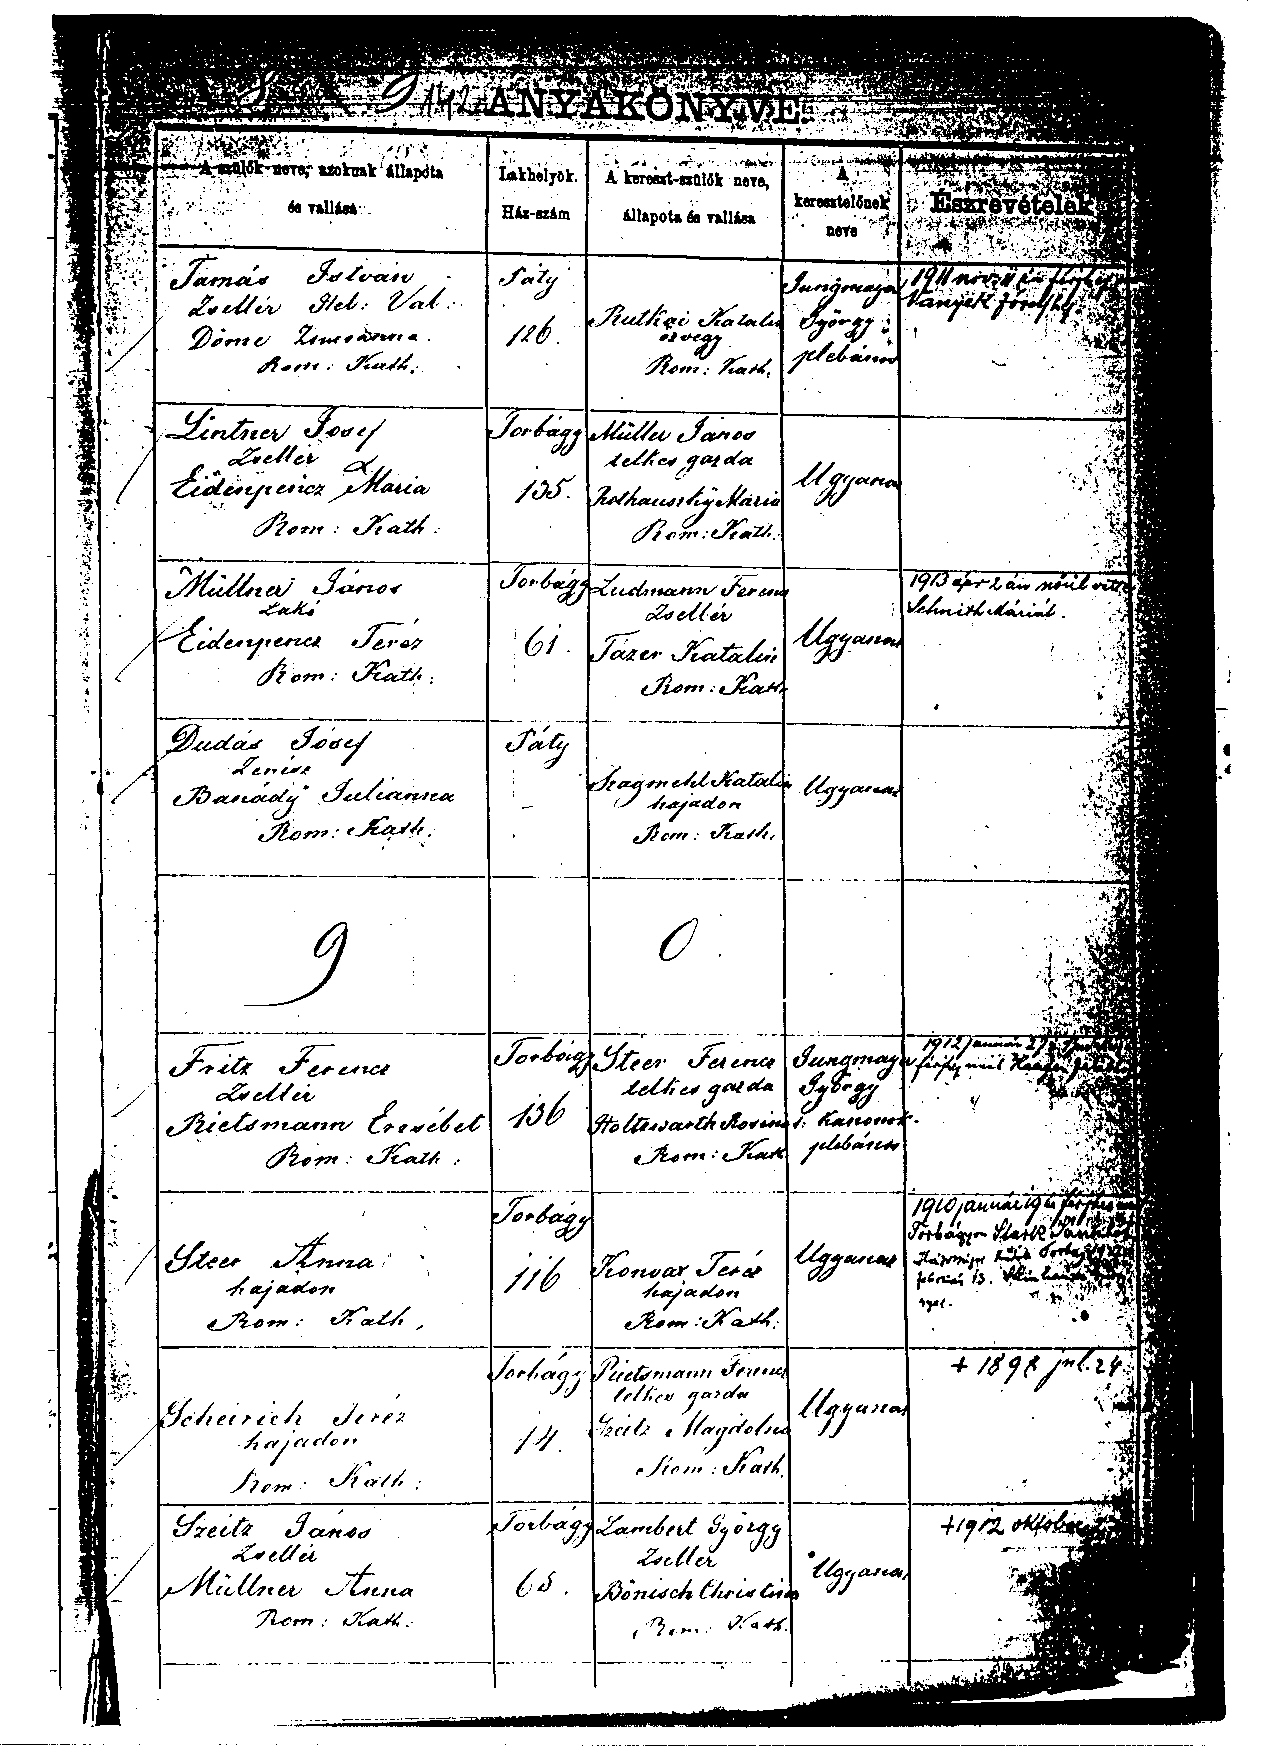 142. ANYAKÖNYVE.
A szülők neve, azoknak állapota
és vallása
Lakhelyök.
Ház-szám
A kereszt-szülők neve,
állapota és vallása
A
keresztelőnek
neve
Észrevételek
Tamás István
Zsellér Hel: Val:
Döme Zsuzsánna.
Rom: Kath:
Páty
126.
Katalin
özvegy
Rom: Kath.
Jungmayer
György
plebános
1911 nov
Lintner Josef
Zsellér
Eidenpencz Maria
Rom: Kath:
Torbágy
135.
Müller János
telkes gazda
Mária
Rom: Kath.
Ugyanaz
Müllner János
Lakó
Eidenpencz Teréz
Rom: Kath:
Torbágy
61.
Ludmann Ferencz
Zsellér
Tázer Katalin
Rom: Kath
Ugyanaz
1913 ápr 2 án nőül vette
Schmith Máriát.
Dudás Jósef
Zenész
Banády Julianna
Rom: Kath:
Páty
-
Katalin
hajadon
Rom: Kath.
Ugyanaz
9
0
Fritz Ferencz
Zsellér
Rietsmann Erzsébet
Rom: Kath:
Torbágy
136
Steer Ferencz
telkes gazda
Holtzwarth Rosina
Rom: Kath
Jungmayer
György
t. Kanonok.
plebános
1912 január 27
Steer Anna
hajadon
Rom: Kath.
Torbágy
116
Teréz
hajadon
Rom: Kath:
Ugyanaz
1910 január 19
Torbágyon Stark
február 13.
Scheirich Teréz
hajadon
Rom: Kath:
Torbágy
14.
Rietsmann Ferencz
telkes gazda
Szeitz Magdolna
Rom: Kath.
Ugyanaz
+ 1898 jul. 24.
Szeitz János
Zsellér
Müllner Anna
Rom: Kath:
Torbágy
65.
Lambert György
Zsellér
Bönisch Christina
Rom: Kath.
Ugyanaz
+1912 oktober